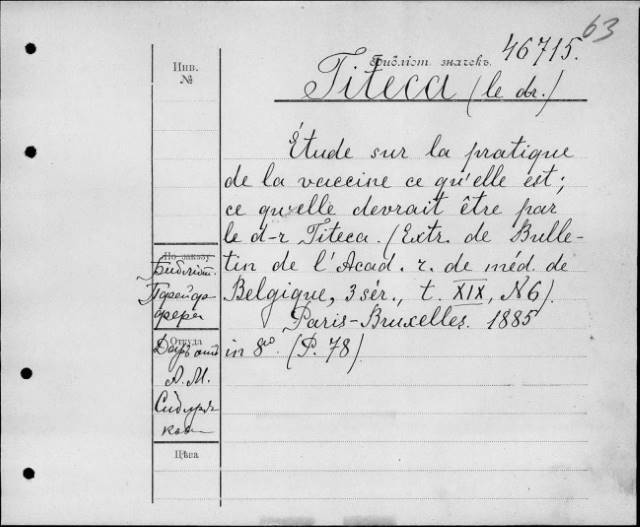 63
Библіот. значекъ. 46715.
Инв.
№
Titeca (le dr.)
Étude sur la pratique
de la vaccine ce qu'elle est;
ce qu'elle devrait être par
le d-r Titeca. (Extr. de Bulle-
tin de l'Acad. r. de méd. de
Belgique, 3 sér., t. XIX, N6).
Paris-Bruxelles. 1885
in 8º. (P. 78).
По заказу
Библіот.
Откуда
Даръ отъ
А. М.
Цѣна